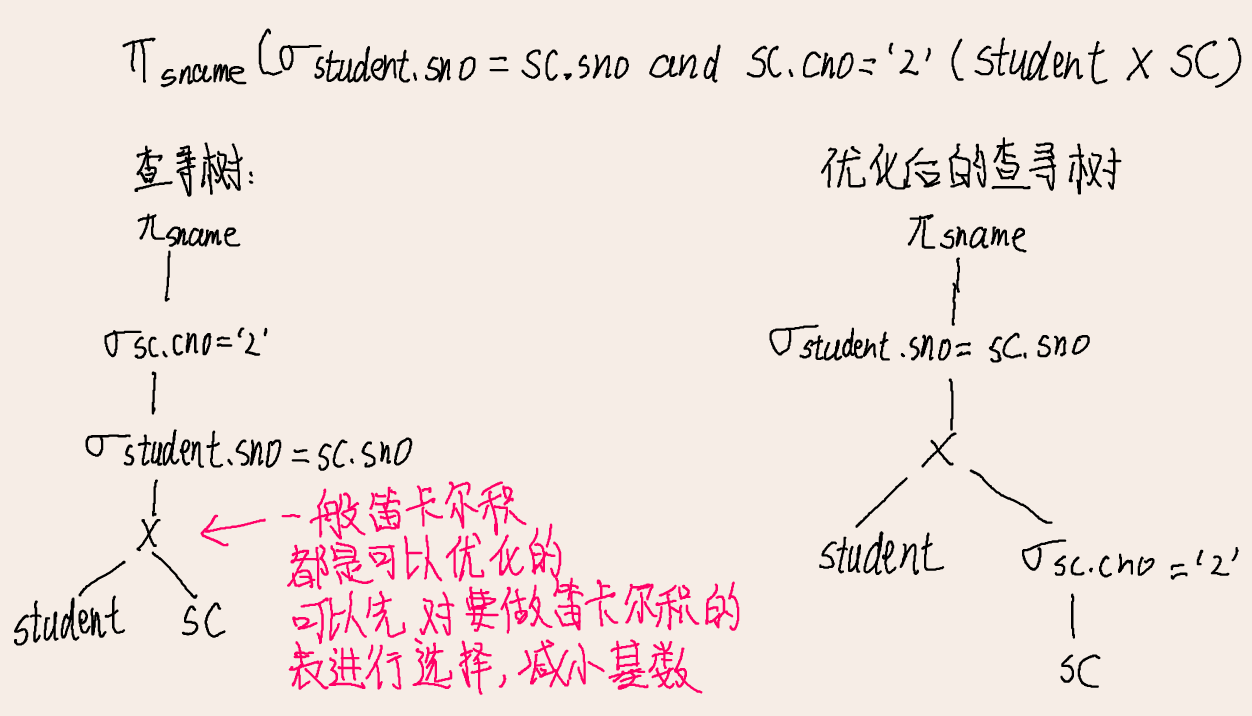 π sname (σ student.sno = SC.sno and SC.cno='2' (student × SC)
查寻树:
π sname
σ sc.cno='2'
σ student.sno = sc.sno
×
student SC
一般笛卡尔积
都是可以优化的
可以先 对要做笛卡尔积的
表进行选择,减小基数
优化后的查寻树
π sname
σ student.sno = sc.sno
×
student σ sc.cno ='2'
SC